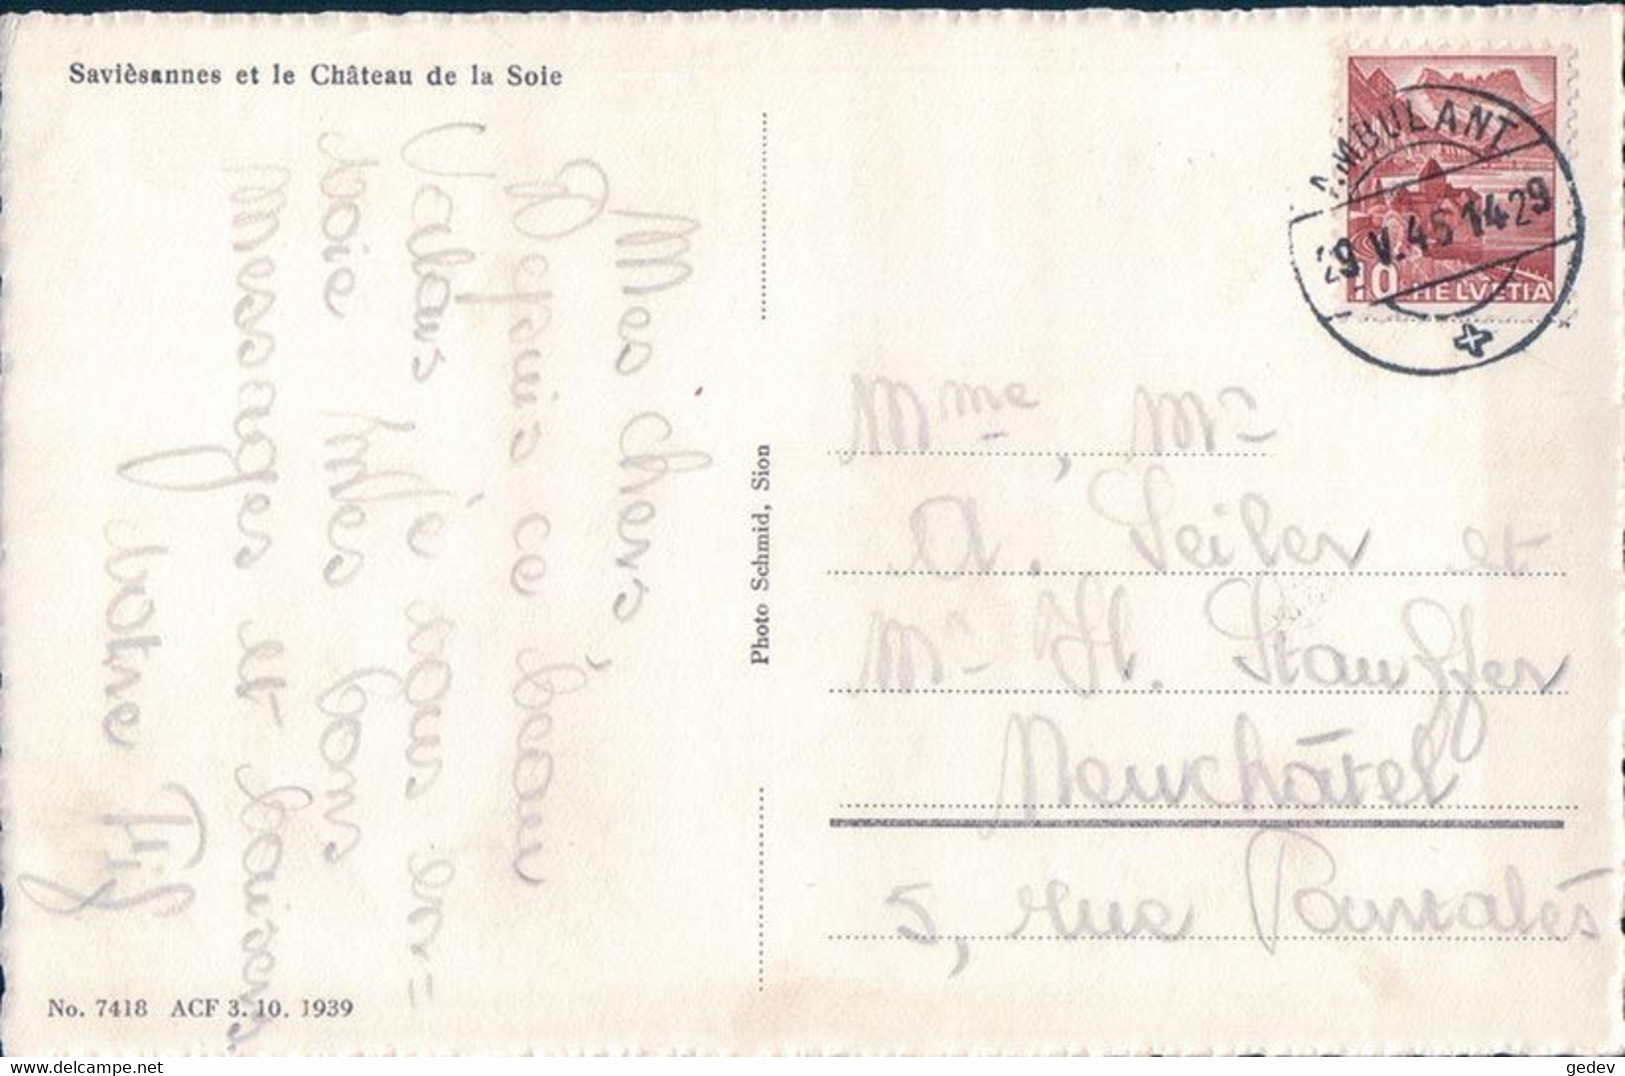 Savièsannes et le Château de la Soie
Mes chers
Depuis ce beau
Valais je vous en=
voie mes bons
messages et baisers.
Votre Fif
No. 7418 ACF 3. 10. 1939
Photo Schmid, Sion
AMBULANT
29 V. 45 1429
10 HELVETIA
Mme, Mr
A. Seiler et
Mr H. Stauffer
Neuchâtel
5, rue Pourtalès
gedev